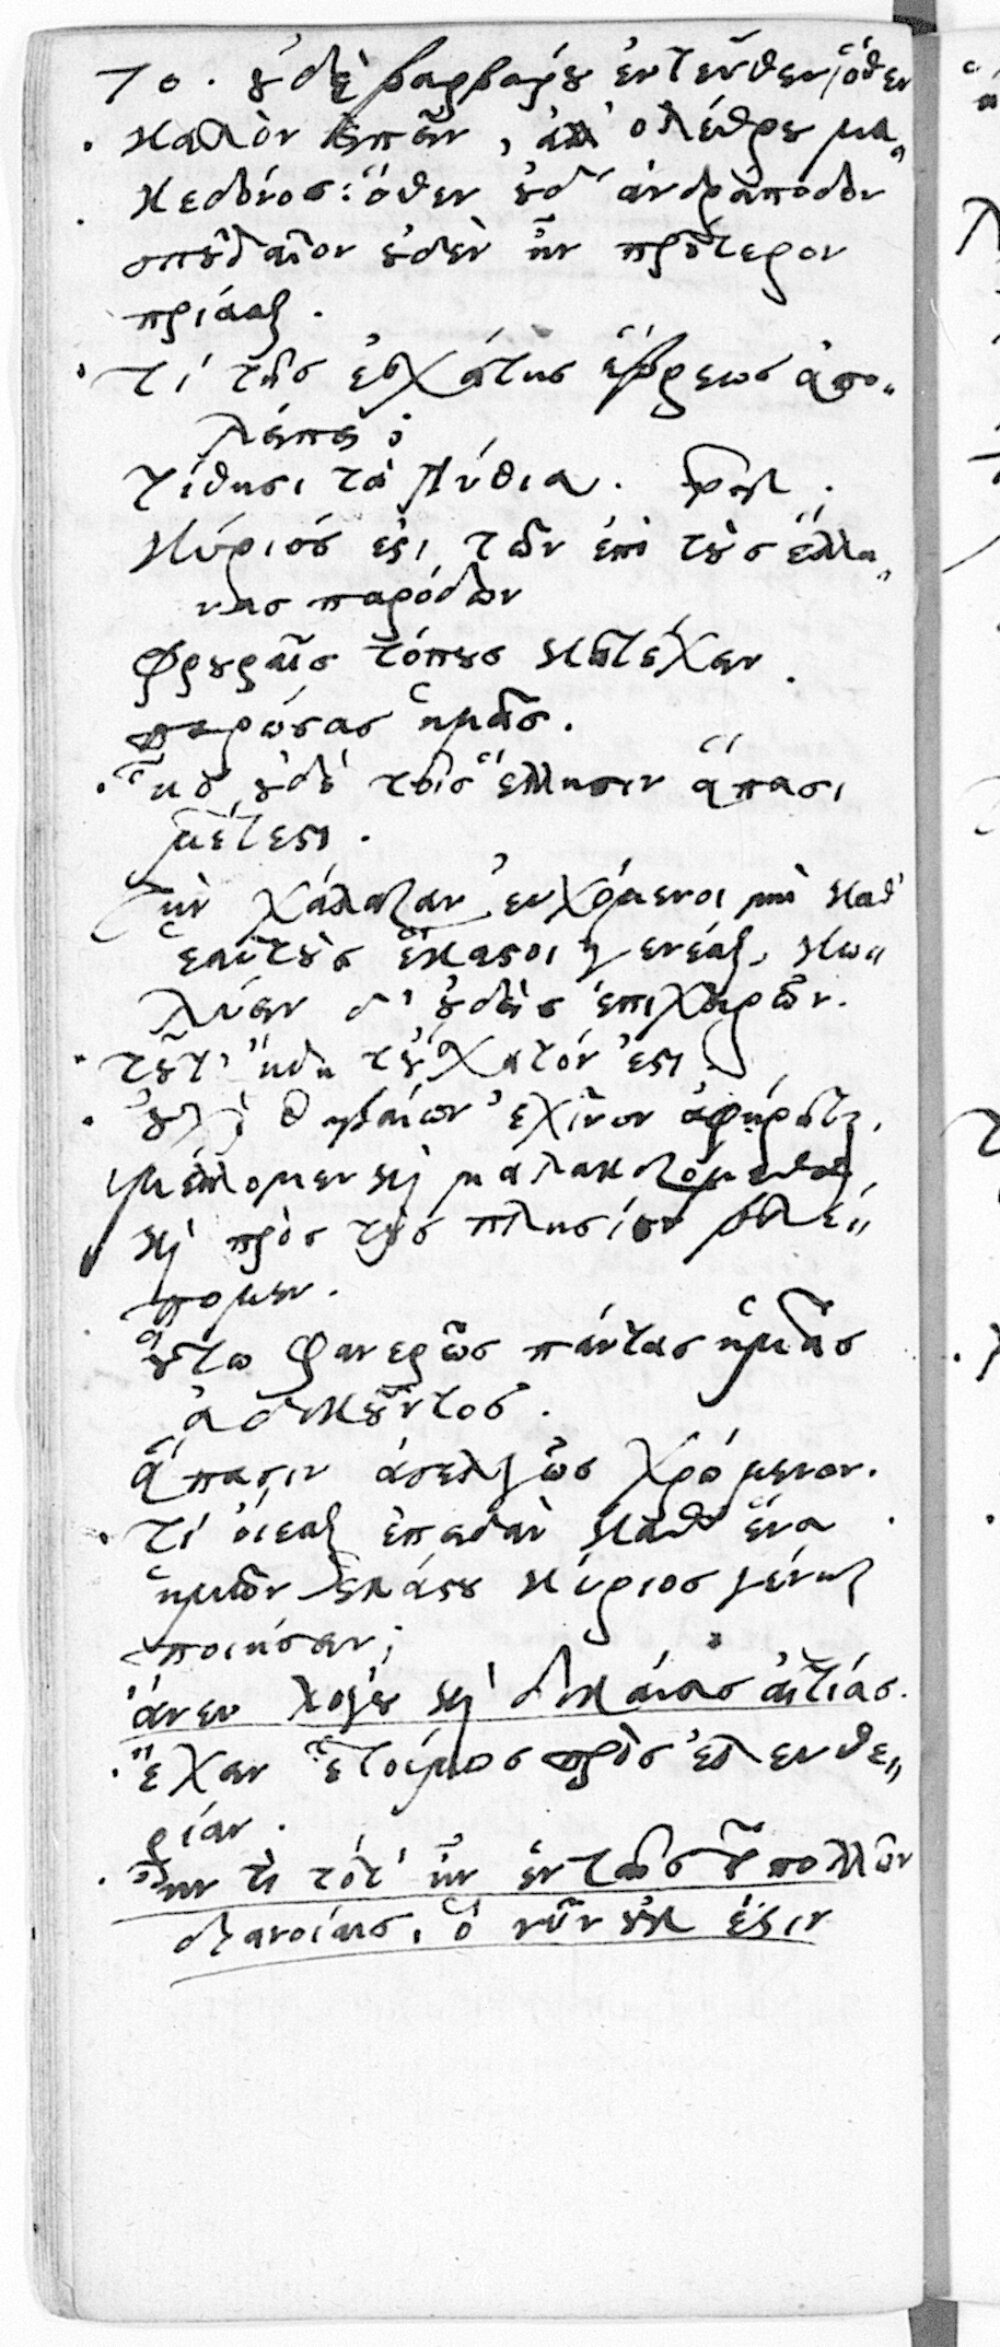 70. οὐδὲ βαρβάρου ἐντεῦθεν ὅθεν
καλὸν εἰπεῖν, ἀλλ' ὀλέθρου μα„
κεδόνος: ὅθεν οὐδ' ἀνδράποδον
σπουδαῖον οὐδὲν ἦν πρότερον
πρίασθαι.
τί τῆς ἐσχάτης ὕβρεως ἀπο„
λείπει;
τίθησι τὰ πύθια.
κύριός ἐστι τῶν ἐπὶ τοὺς ἕλλη„
νας παρόδων
φρουραῖς τόπους κατέχειν.
παρώσας ἡμᾶς.
ἧς οὐδὲ τοῖς ἕλλησιν ἅπασι
μέτεστι.
τὴν χάλαζαν εὐχόμενοι μὴ καθ'
ἑαυτοὺς ἕκαστοι γενέσθαι, κω„
λύειν δ' οὐδεὶς ἐπιχειρῶν.
τοῦτ' ἤδη τοὔσχατόν ἐστι.
οὐχὶ θηβαίων ἐχῖνον ἀφῄρηται.
μέλλομεν καὶ μαλακιζόμεθα,
καὶ πρὸς τοὺς πλησίον βλέ„
πομεν.
οὕτω φανερῶς πάντας ἡμᾶς
ἀδικοῦντος.
ἅπασιν ἀσελγῶς χρώμενον.
τί οἴεσθαι ἐπειδὰν καθ' ἕνα
ἡμῶν ἑκάστου κύριος γένηται
ποιήσειν;
ἄνευ λόγου καὶ δικαίας αἰτίας.
ἔχειν ἑτοίμως πρὸς ἐλευθε„
ρίαν.
ἦν τι τότ' ἦν ἐν ταῖς τῶν πολλῶν
διανοίαις, ὃ νῦν οὐκ ἔστιν